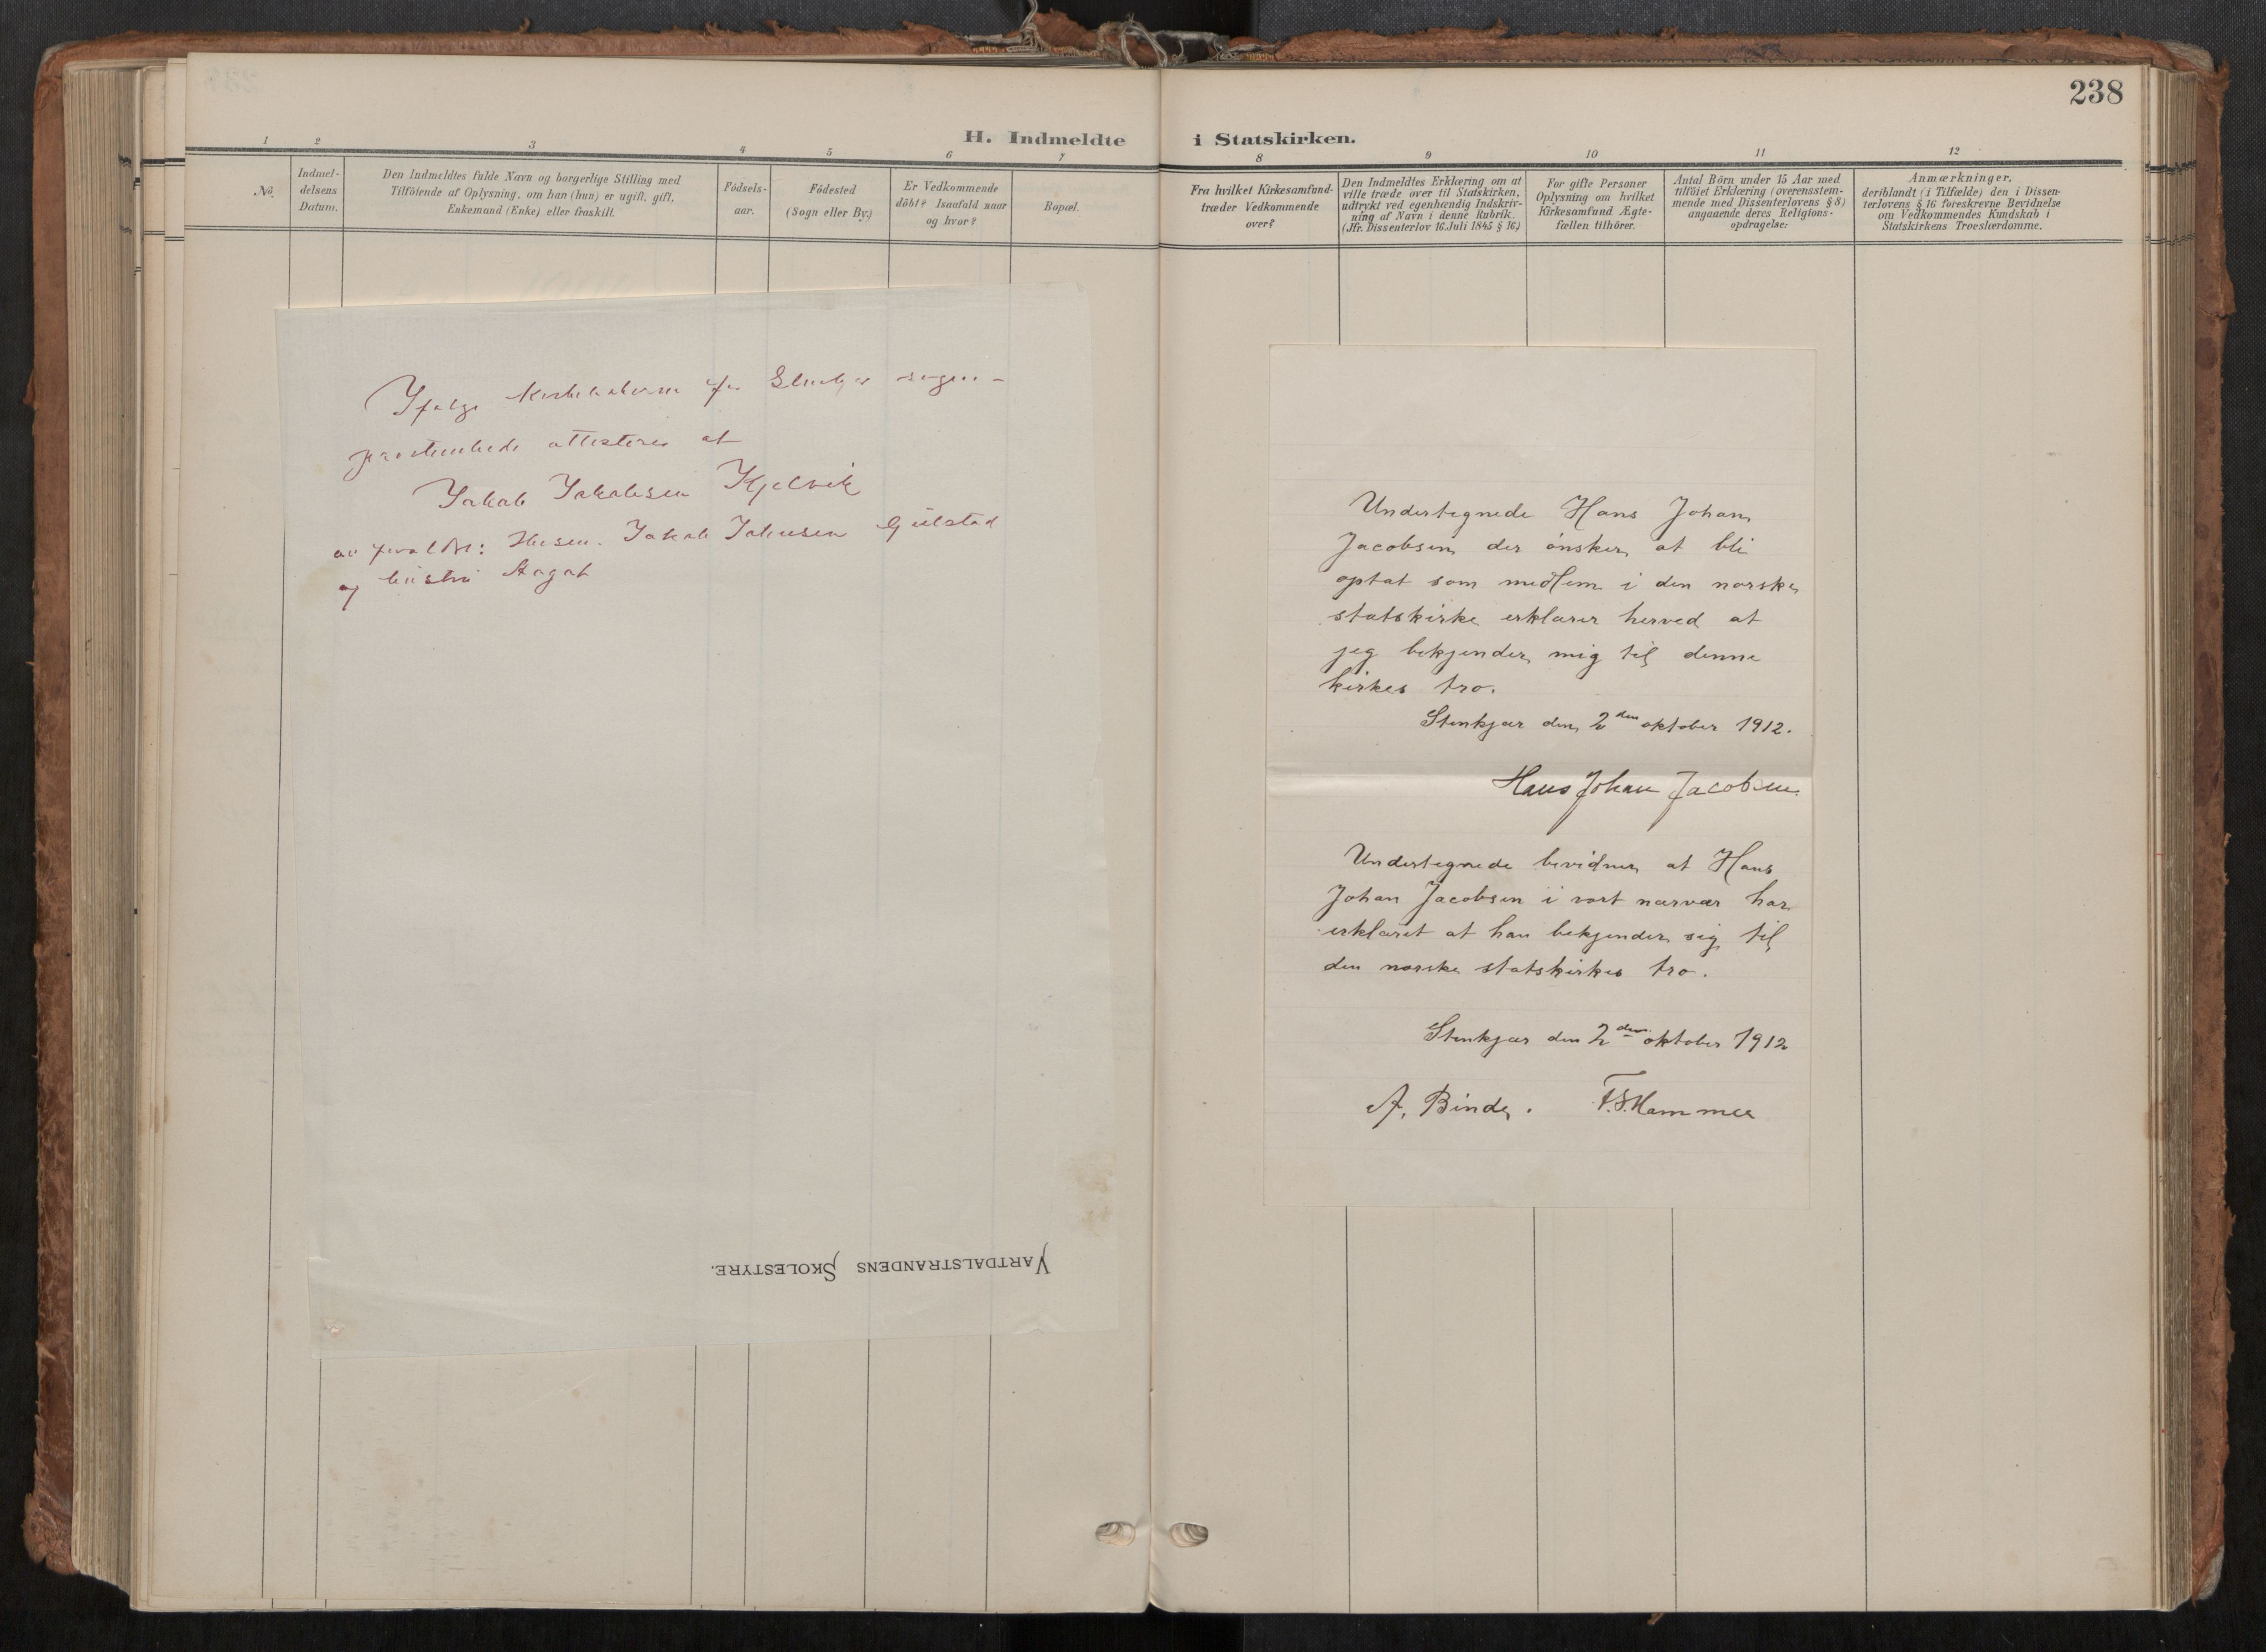 238
H. Indmeldte i Statskirken.
1 2 3 4 5 6 7 8 9 10 11 12
No.
Indmel-
delsens
Datum.
Den Indmeldtes fulde Navn og borgerlige Stilling med
Tilföiende af Oplysning, om han (hun) er ugift, gift,
Enkemand (Enke) eller fraskilt.
Födsels-
aar.
Födested
(Sogn eller By.)
Er Vedkommende
döbt? Isaafald naar
og hvor?
Bopæl.
Fra hvilket Kirkesamfund
træder Vedkommende
over?
Den Indmeldtes Erklæring om at
ville træde over til Statskirken,
udtrykt ved egenhændig Indskriv-
ning af Navn i denne Rubrik.
(Jfr. Dissenterlov 16. Juli 1845 § 16.)
For gifte Personer
Oplysning om hvilket
Kirkesamfund Ægte-
fællen tilhörer.
Antal Börn under 15 Aar med
tilföiet Erklæring (overensstem-
mende med Dissenterlovens § 8)
angaaende deres Religions-
opdragelse.
Anmærkninger,
deriblandt (i Tilfælde) den i Dissen-
terlovens § 16 foreskrevne Bevidnelse
om Vedkommendes Kundskab i
Statskirkens Troeslærdomme.
Ifølge for sogne-
attesteres at
Jakob Jakobsen Kjelvik
av Jakob
og hustru Aagot
VARTDALSTRANDENS SKOLESTYRE.
Undertegnede Hans Johan
Jacobsen der ønsker at bli
optat som medlem i den norske
statskirke erklærer herved at
jeg bekjender mig til denne
kirkes tro.
Stenkjær den 2den oktober 1912.
Hans Johan Jacobsen.
Undertegnede bevidner at Hans
Johan Jacobsen i vort nærvær har
erklæret at han bekjender sig til
den norske statskirkes tro.
Stenkjær den 2den oktober 1912
A. Binde. Hammer